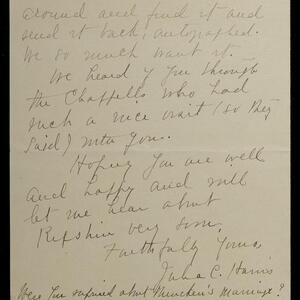 around and find it and
send it back, autographed.
We so much want it.
We heard of you through
the Chappells who had
such a nice visit (so they
said) with you.
Hoping you are well
and happy and will
let me hear about
Ripshin very soon,
Faithfully yours,
Julia C. Harris
Were you surprised about Mencken's marriage?